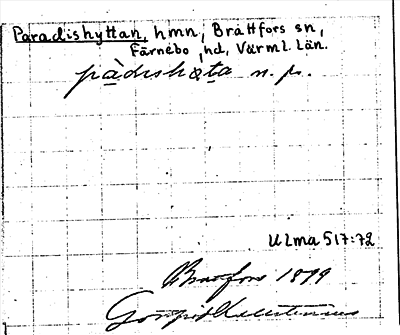 Paradishyttan, hmn, Brattfors sn,
Färnebo hd, Värml. Län.
pàdishæta n. ps.
Ulma 517:72
Brattfors 1899